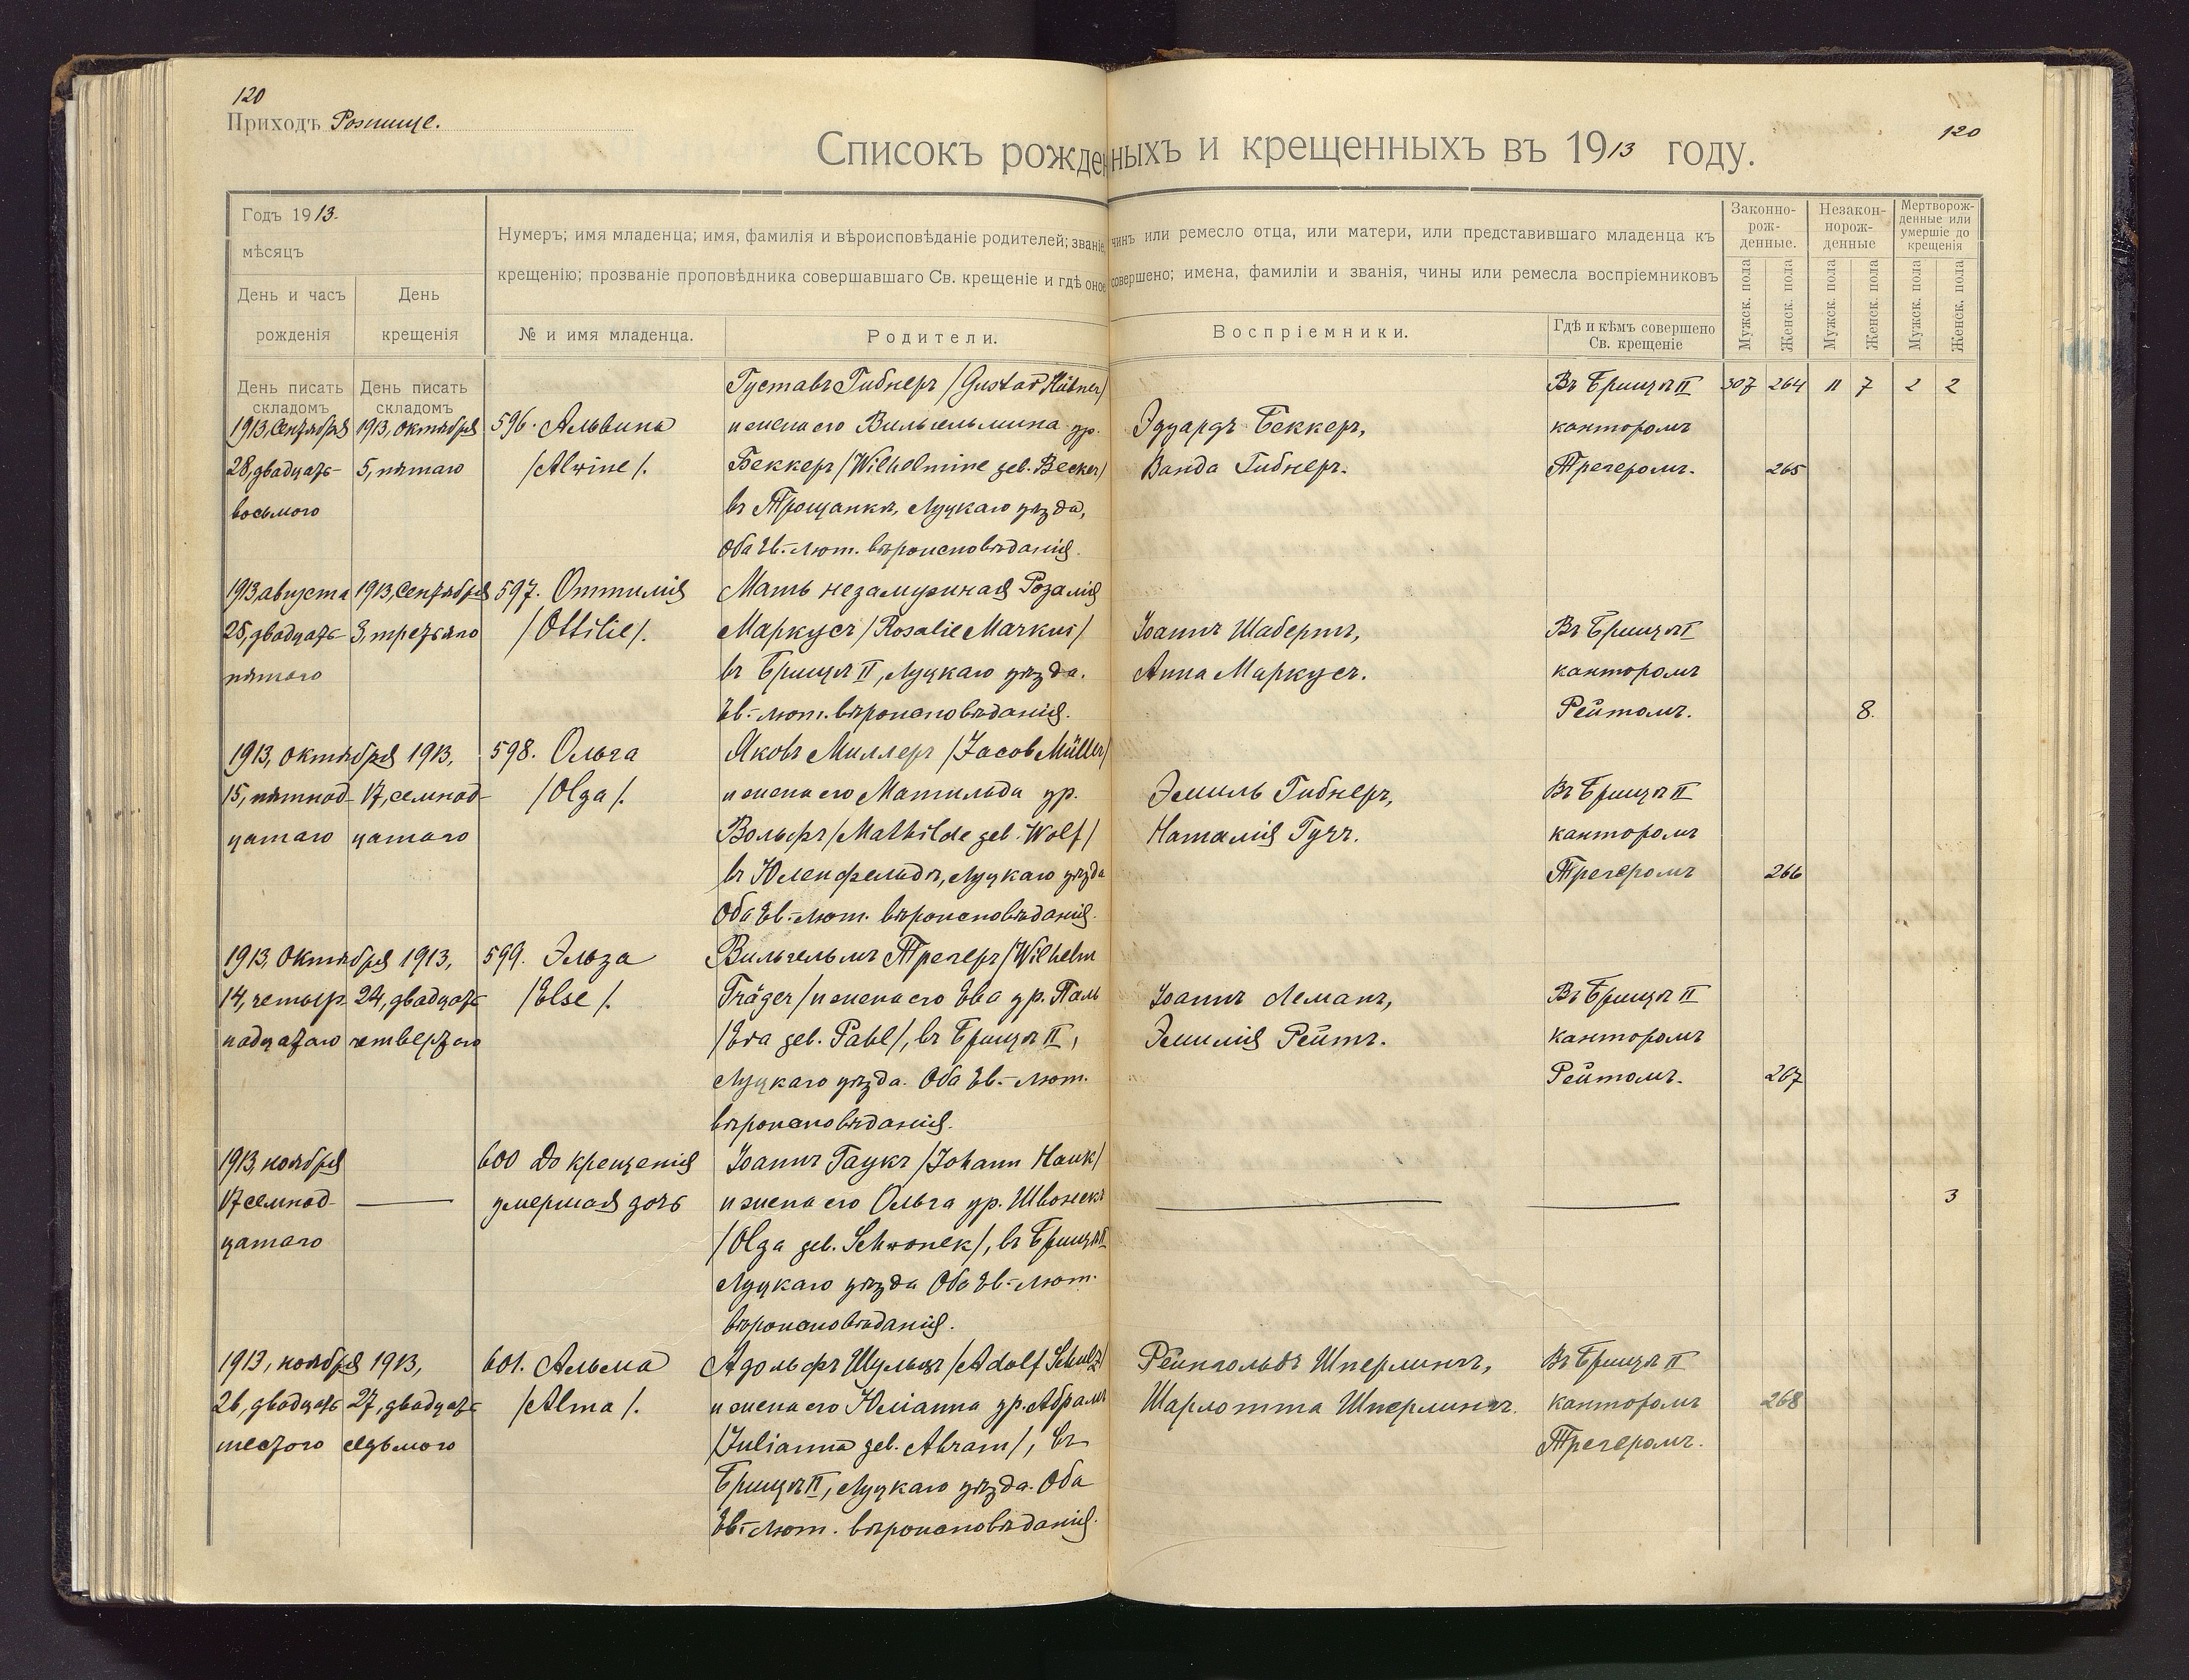 120
Приходъ Рожище.
120
Списокъ рожденныхъ и крещенныхъ въ 1913 году.
Годъ 1913.
мѣсяцъ
День и часъ рожденія
День крещенія
Нумеръ; имя младенца; имя, фамилія и вѣроисповѣданіе родителей; званіе, чинъ или ремесло отца, или матери, или представившаго младенца къ
крещенію; прозваніе проповѣдника совершавшаго Св. крещеніе и гдѣ оное совершено; имена, фамиліи и званія, чины или ремесла воспріемниковъ
№ и имя младенца.
Родители.
Воспріемники.
Гдѣ и кѣмъ совершено
Св. крещеніе
Законно-
рож-
денные.
Незакон-
норож-
денные
Мертворож-
денные или
умершіе до
крещенія
Мужск. пола
Женск. пола
Мужск. пола
Женск. пола
Мужск. пола
Женск. пола
День писать
складомъ
День писать
складомъ
307 264 11 7 2 2
1913, Сентября
28, двадцать
восьмого
1913, Октября
5, пятаго
596. Альвина
/Alwine/.
Густавъ Гибнеръ /Gustav Hübner/
и жена его Вильгельмина ур.
Беккеръ /Wilhelmine geb. Becker/
въ Трощанкѣ, Луцкаго уѣзда,
Оба Ев.-лют. вѣроисповѣданія.
Эдуардъ Беккеръ,
Ванда Гибнеръ.
Въ Брищѣ II
канторомъ
Трегеромъ.
265
1913, августа
25, двадцать
пятаго
1913, Сентября
3, третьяго
597. Оттилія
/Ottilie/.
Мать незамужная Розалія
Маркусъ /Rosalie Markus/
въ Брищѣ II, Луцкаго уѣзда.
Ев.-лют. вѣроисповѣданія.
Іоаннъ Шабертъ,
Анна Маркусъ.
Въ Брищѣ I
канторомъ
Рейтомъ.
8.
1913, октября 1913,
15, пятнад- 17, семнад-
цатаго цатаго
598. Ольга
/Olga/.
Яковъ Миллеръ /Jacob Müller/
и жена его Матильда ур.
Вольфъ /Mathilde geb. Wolf/
въ Юленфельдѣ, Луцкаго уѣзда
Оба Ев.-лют. вѣроисповѣданія.
Эмиль Гибнеръ,
Наталія Гучъ.
Въ Брищѣ II
канторомъ
Трегеромъ
266
1913, Октября 1913,
14, четыр- 24, двадцать
надцатаго четвертаго
599. Эльза
/Else/.
Вильгельмъ Трегеръ /Wilhelm
Träger/ и жена его Ева ур. Паль
/Eva geb. Pahl/, въ Брищѣ II,
Луцкаго уѣзда. Оба Ев.-лют.
вѣроисповѣданія.
Іоаннъ Леманъ,
Эмилія Рейтъ.
Въ Брищѣ II
канторомъ
Рейтомъ.
267
1913, ноября
17 семнад-
цатаго
600 До крещенія
умершая дочь
Іоаннъ Гаукъ /Johann Hauk/
и жена его Ольга ур. Швонекъ
/Olga geb. Schwonek/, въ Брищѣ II
Луцкаго уѣзда Оба Ев.-лют.
вѣроисповѣданія.
3
1913, ноября 1913,
26, двадцать 27, двадцать
шестого седьмого
601. Альма
/Alma/.
Адольфъ Шульцъ /Adolf Schulz/
и жена его Юліанна ур. Абрамъ
/Julianna geb. Abram/, въ
Брищѣ II, Луцкаго уѣзда. Оба
Ев.-лют. вѣроисповѣданія.
Рейнгольдъ Шперлингъ,
Шарлотта Шперлингъ.
Въ Брищѣ II
канторомъ
Трегеромъ.
268